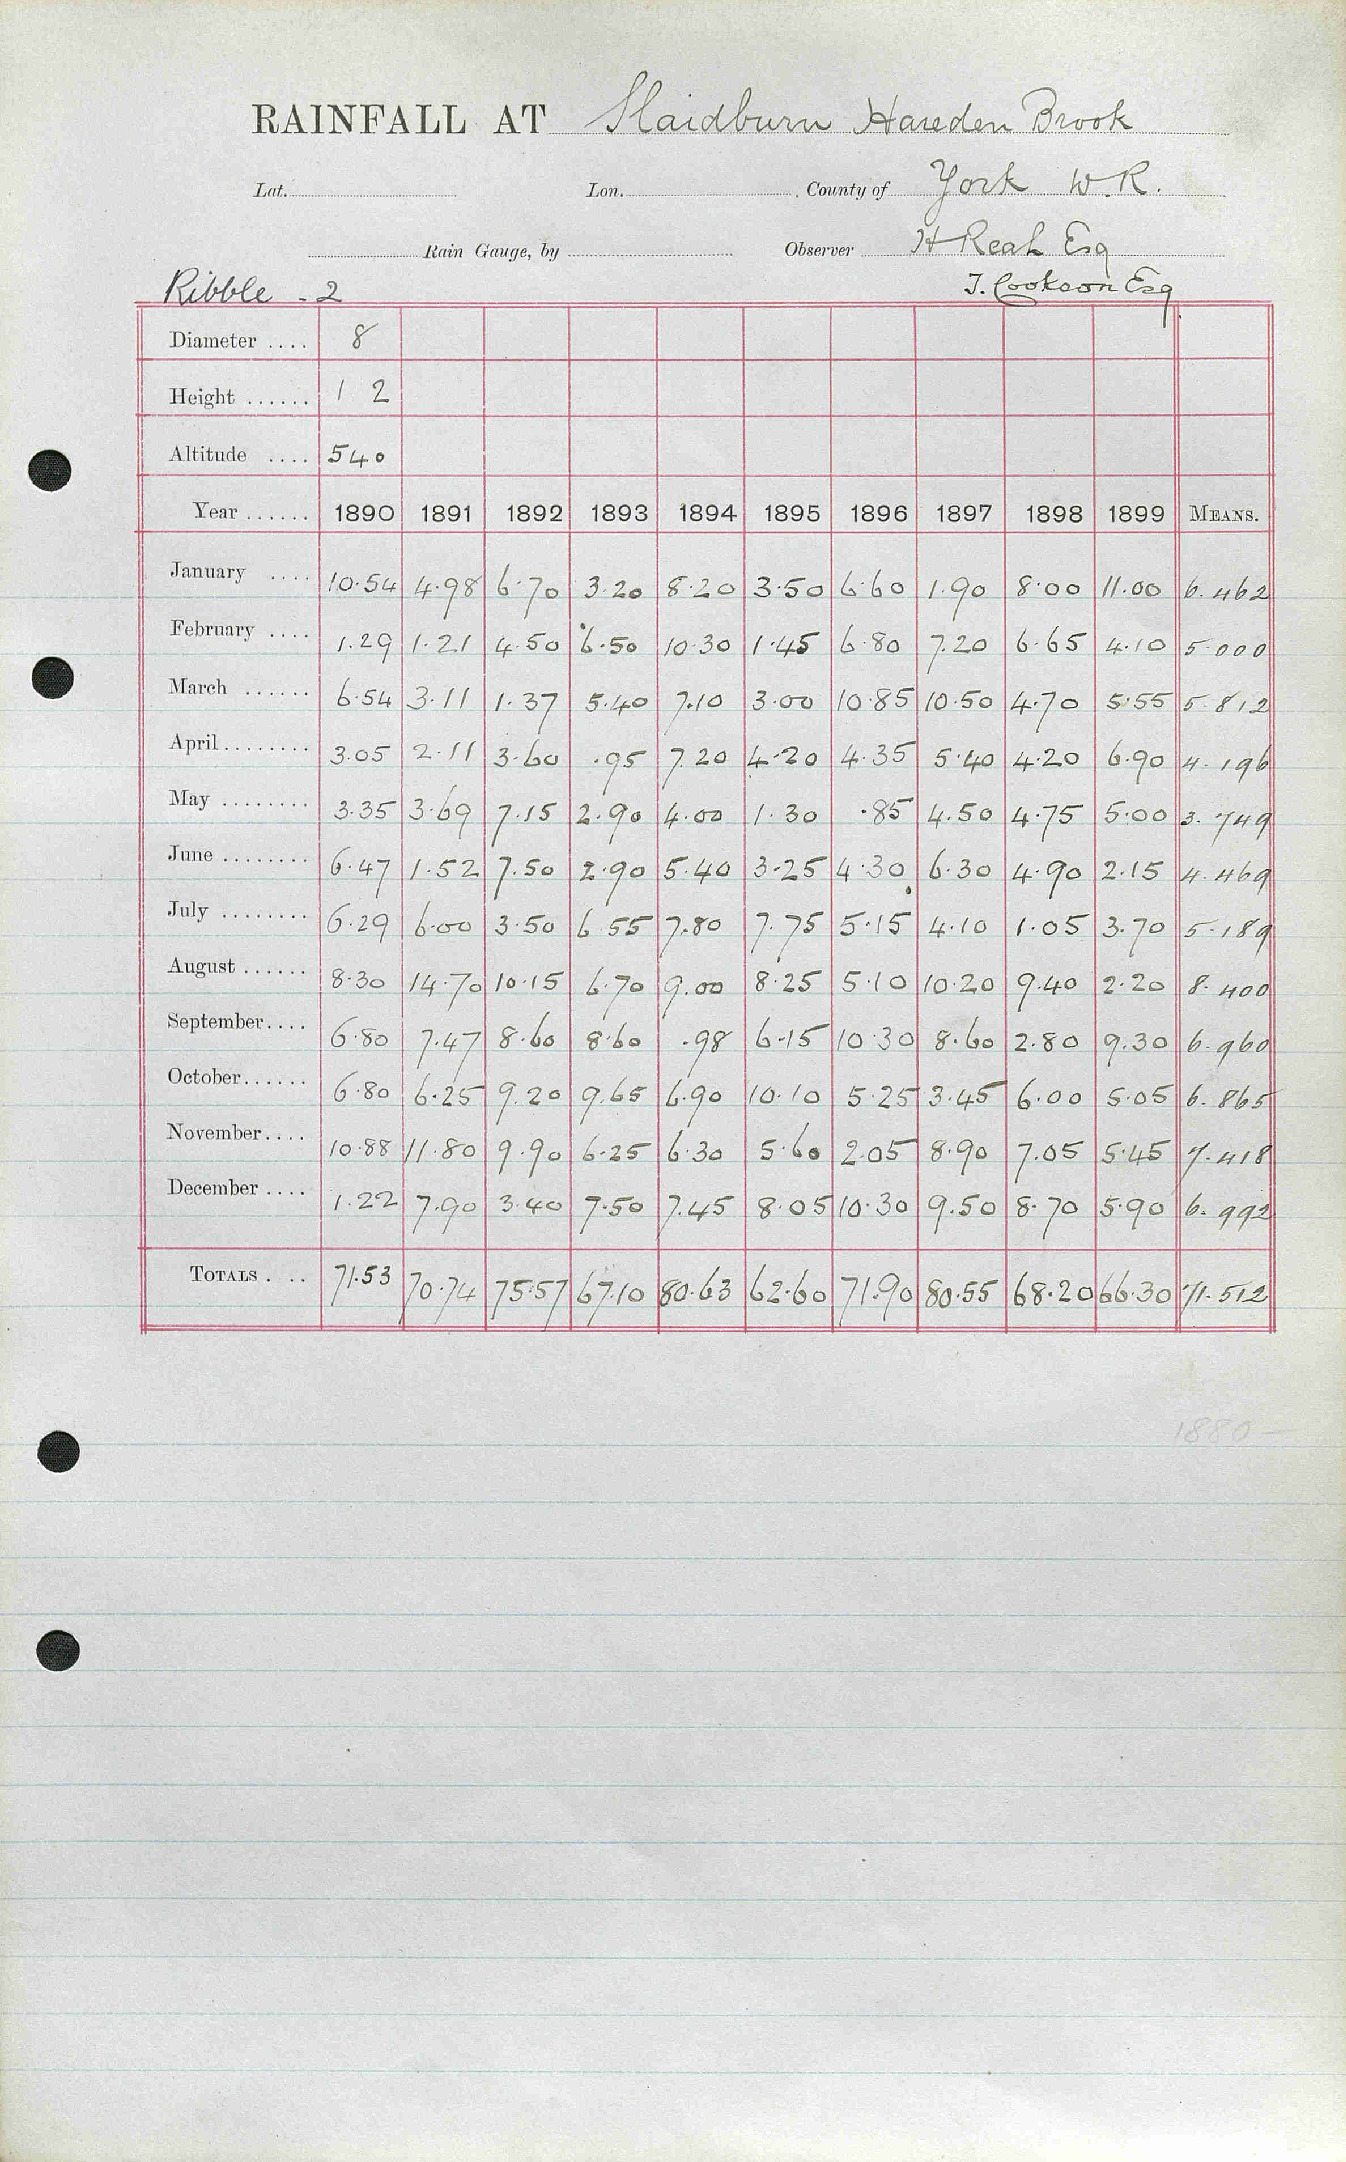 RAINFALL AT Slaidburn Hareden Brook
Lat. Lon. County of York W.R.
Rain Gauge, by Observer H Reah Esq
Ribble - 2 T. Cookson Esq
Diameter .... 8
Height ...... 1 2
Altitude .... 540
Year ...... 1890 1891 1892 1893 1894 1895 1896 1897 1898 1899 MEANS.
January .... 10.54 4.98 6.70 3.20 8.20 3.50 6.60 1.90 8.00 11.00 6.462
February .... 1.29 1.21 4.50 6.50 10.30 1.45 6.80 7.20 6.65 4.10 5.000
March ...... 6.54 3.11 1.37 5.40 7.10 3.00 10.85 10.50 4.70 5.55 5.812
April ........ 3.05 2.11 3.60 .95 7.20 4.20 4.35 5.40 4.20 6.90 4.196
May ........ 3.35 3.69 7.15 2.90 4.00 1.30 .85 4.50 4.75 5.00 3.749
June ........ 6.47 1.52 7.50 2.90 5.40 3.25 4.30 6.30 4.90 2.15 4.469
July ........ 6.29 6.00 3.50 6.55 7.80 7.75 5.15 4.10 1.05 3.70 5.189
August ...... 8.30 14.70 10.15 6.70 9.00 8.25 5.10 10.20 9.40 2.20 8.400
September .... 6.80 7.47 8.60 8.60 .98 6.15 10.30 8.60 2.80 9.30 6.960
October ...... 6.80 6.25 9.20 9.65 6.90 10.10 5.25 3.45 6.00 5.05 6.865
November .... 10.88 11.80 9.90 6.25 6.30 5.60 2.05 8.90 7.05 5.45 7.418
December .... 1.22 7.90 3.40 7.50 7.45 8.05 10.30 9.50 8.70 5.90 6.992
TOTALS . .. 71.53 70.74 75.57 67.10 80.63 62.60 71.90 80.55 68.20 66.30 71.512
1880 -